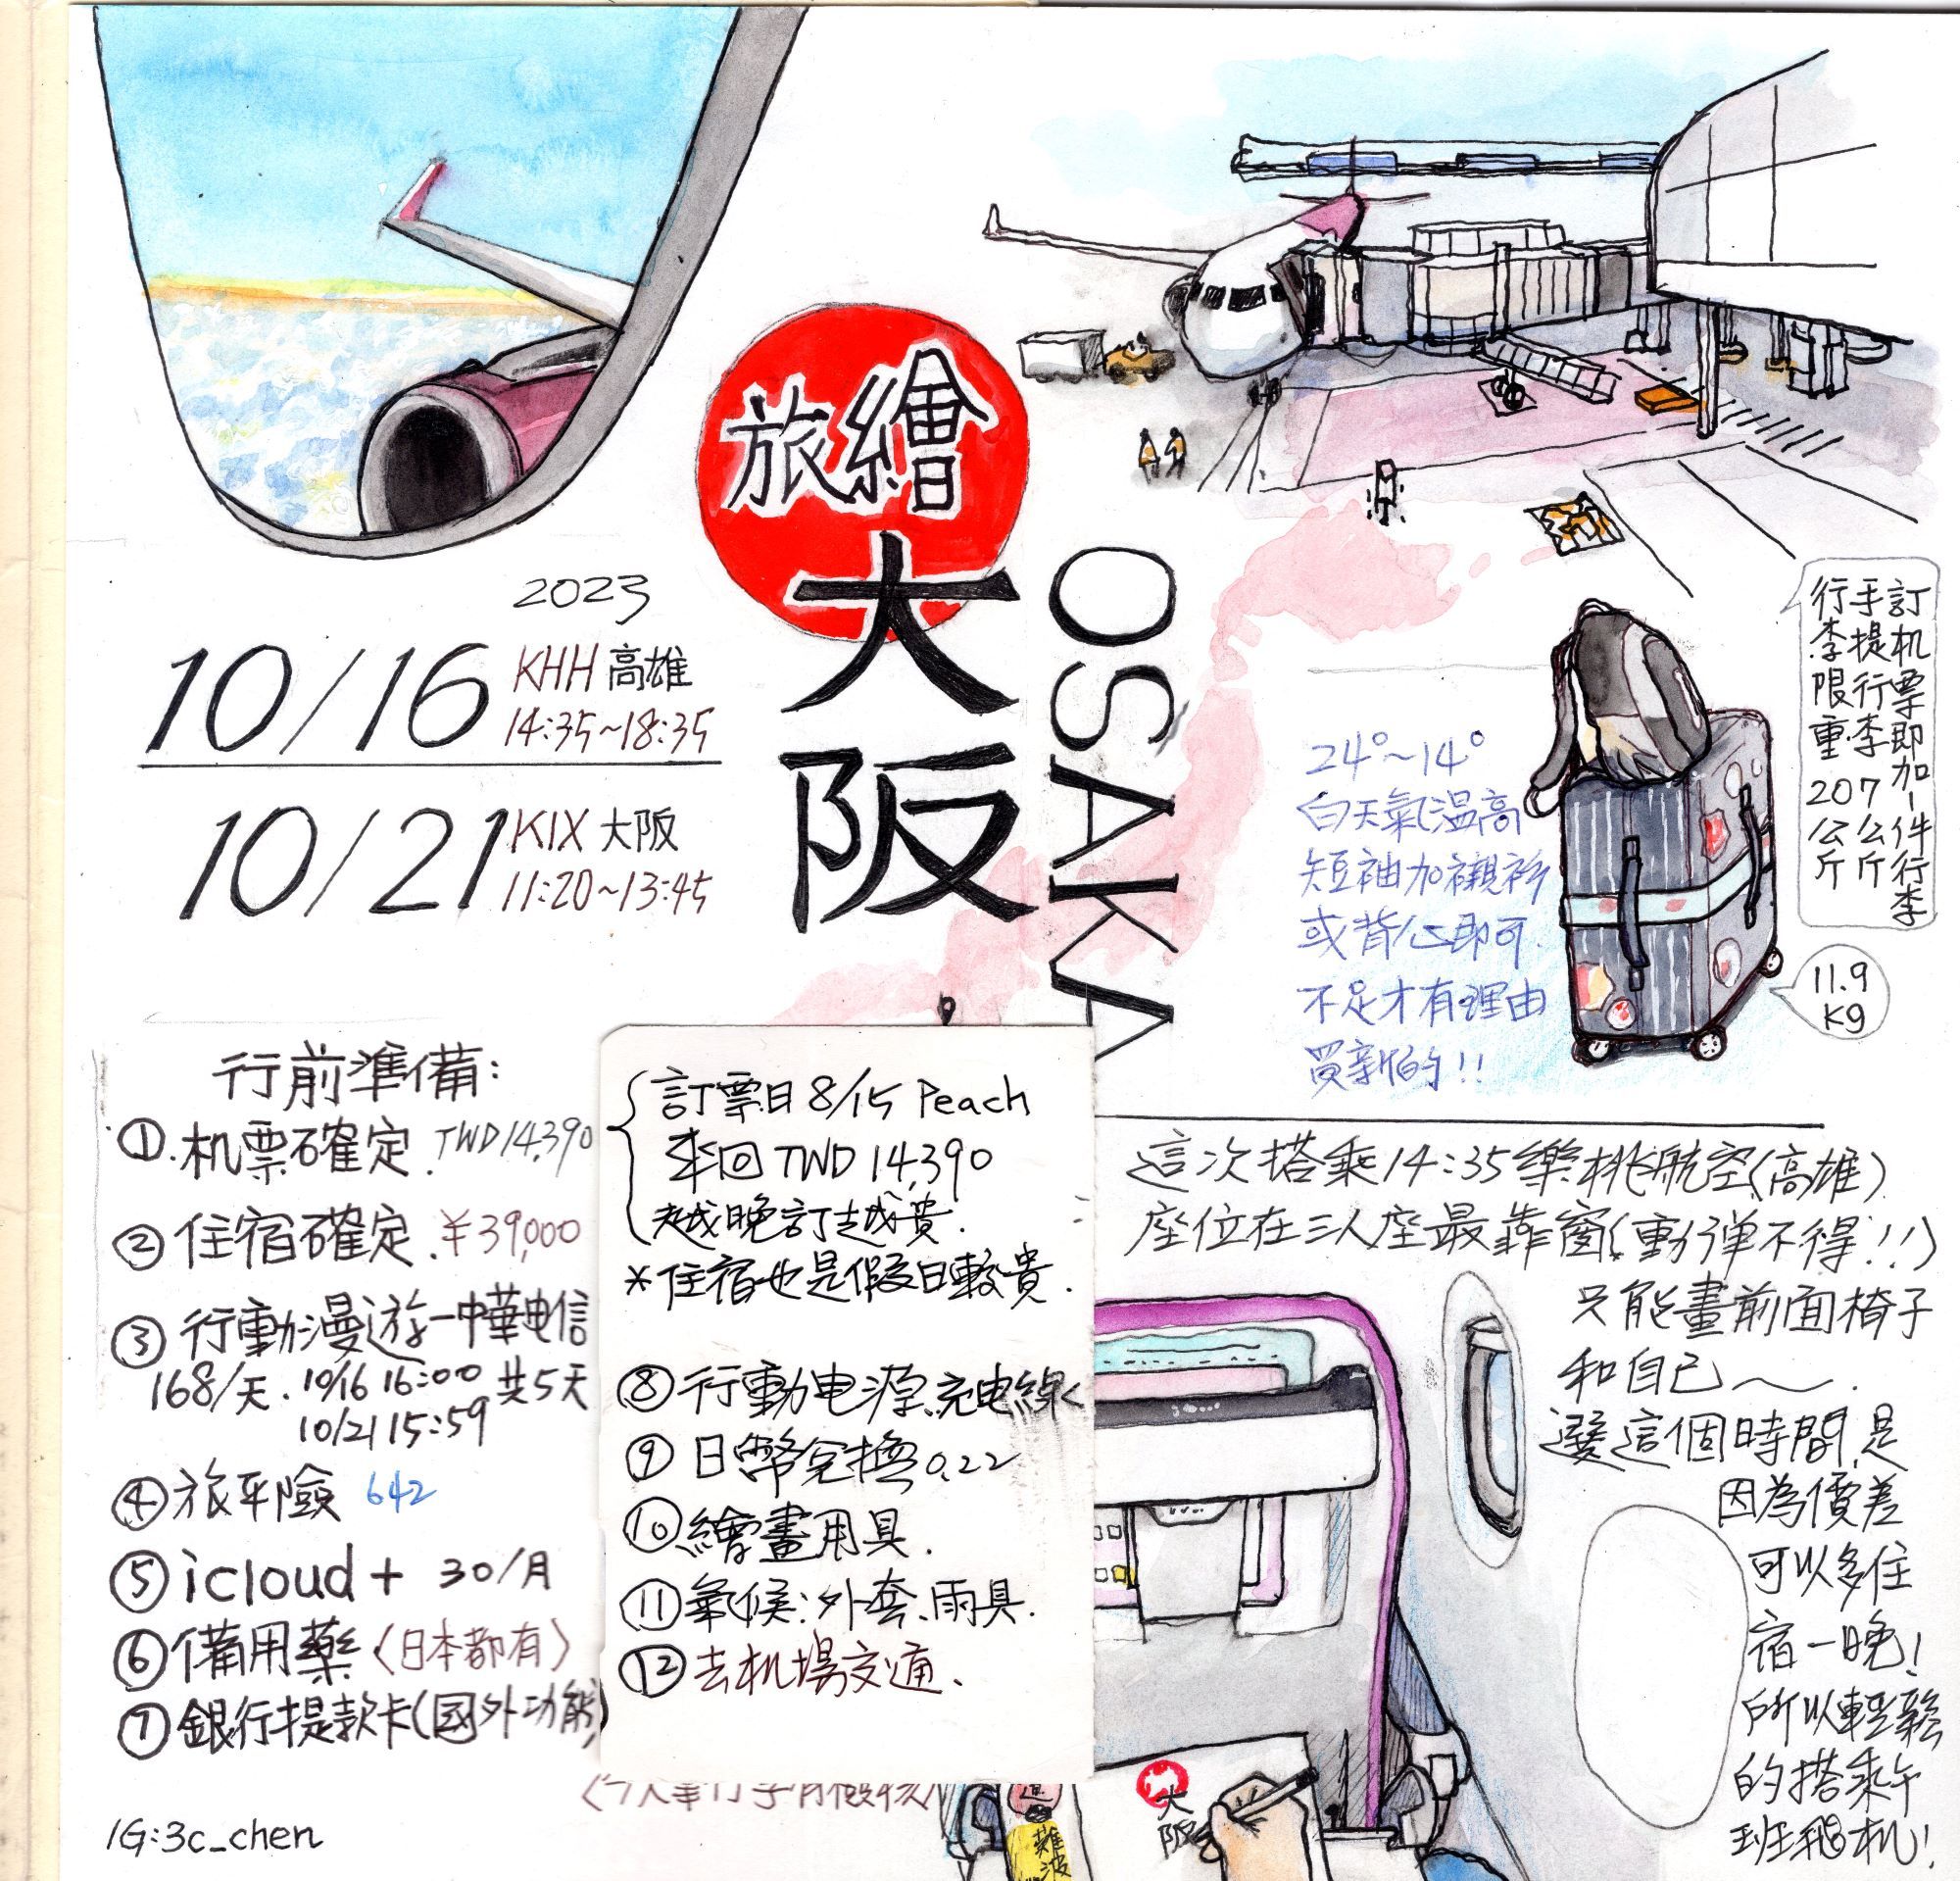 旅繪
大阪
OSAKA
2023
10/16 KHH 高雄
14:35~18:35
10/21 KIX 大阪
11:20~13:45
訂机票即加一件行李
手提行李 7公斤
行李限重 20公斤
11.9
kg
24°~14°
白天氣温高
短袖加襯衫
或背心即可.
不足才有理由
買新的!!
行前準備:
① 机票確定. TWD 14,390
② 住宿確定. ¥39,000
③ 行動漫遊-中華电信
168/天. 10/16 16:00 共5天
10/21 15:59
④ 旅平險 642
⑤ icloud+ 30/月
⑥ 備用藥〈日本都有〉
⑦ 銀行提款卡(國外功能)
訂票日 8/15 Peach
來回 TWD 14,390
越晚訂越貴.
*住宿也是假日較貴.
⑧ 行動电源、充电線
⑨ 日幣兌換 0.22
⑩ 繪畫用具.
⑪ 氣候:外套、雨具.
⑫ 去机場交通.
這次搭乘14:35樂桃航空(高雄)
座位在三人座最靠窗(動弹不得!!)
只能畫前面椅子
和自己～.
選這個時間,是
因為價差
可以多住
宿一晚!
所以輕鬆
的搭乘午
班飛机!
大阪
難波
IG:3c_chen